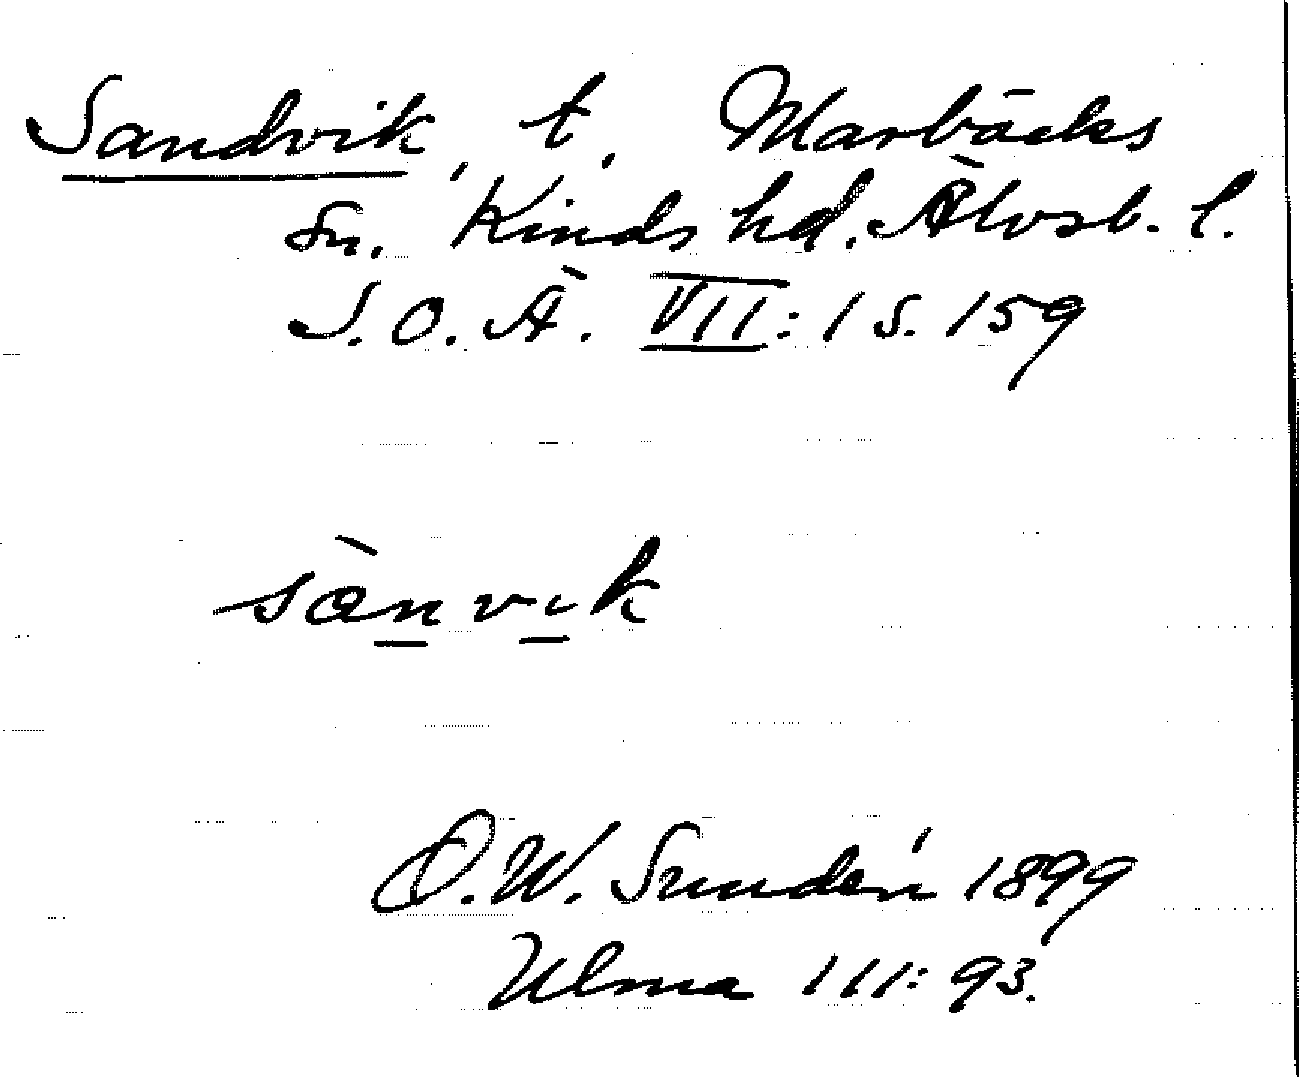 Sandvik, t, Marbäcks
sn. Kinds hd. Älvsb. l.
S.O.Ä. VII: 1 s. 159
sànvik
O.W. Sundén 1899
Ulma 111: 93.